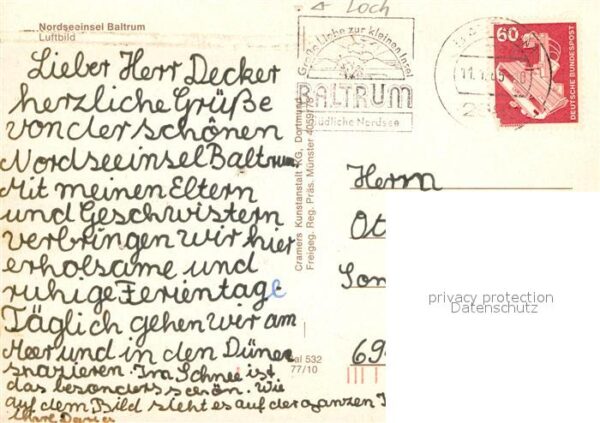 Nordseeinsel Baltrum
Luftbild
Lieber Herr Decker
herzliche Grüße
von der schönen
Nordseeinsel Baltrum.
Mit meinen Eltern
und Geschwistern
verbringen wir hier
erholsame und
ruhige Ferientage
Täglich gehen wir am
Meer und in den Dünen
spazieren. Im Schnee ist
das besonders schön. Wie
auf dem Bild sieht es auf der ganzen I
Ihre
Cramers Kunstanstalt KG, Dortmund
Freigeg. Reg. Präs. Münster
Bal 532
77/10
Loch
Große Liebe zur kleinen Insel
BALTRUM
südliche Nordsee
11.1.
60
DEUTSCHE BUNDESPOST
Herrn
Ot
Son
69
privacy protection
Datenschutz